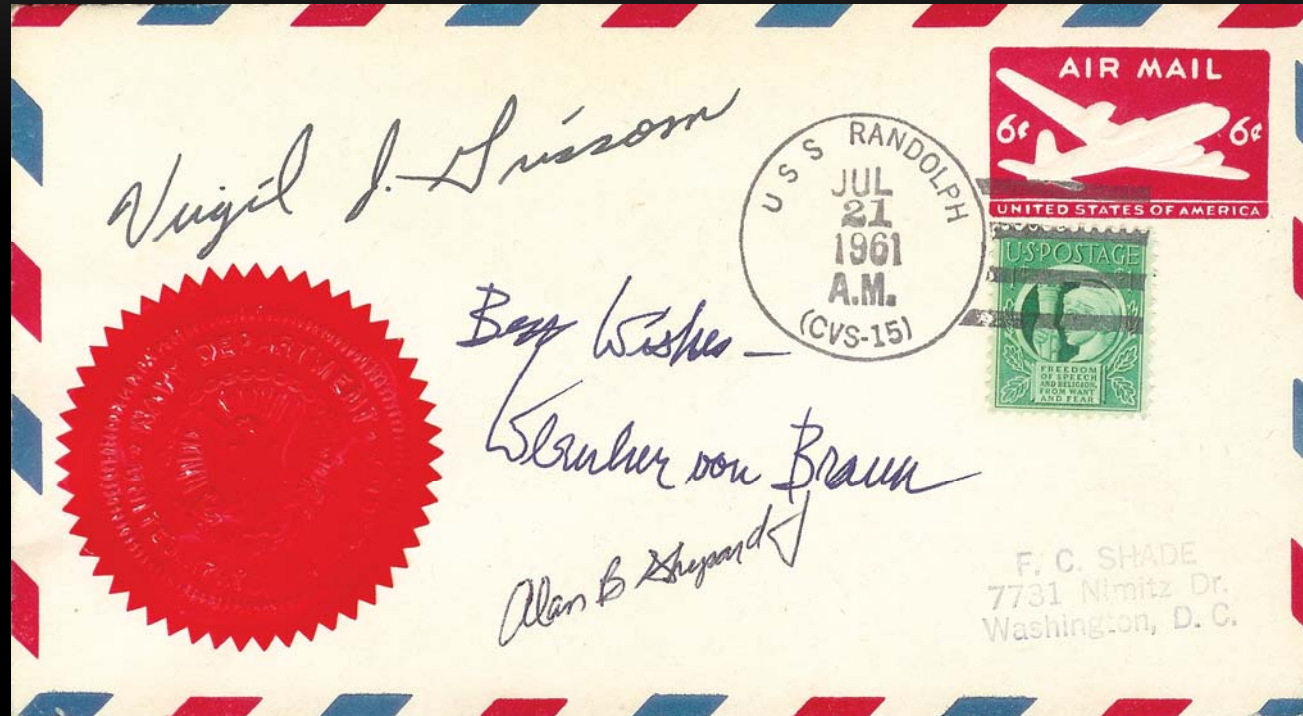 AIR MAIL
6¢ 6¢
UNITED STATES OF AMERICA
USS RANDOLPH
JUL
21
1961
A.M.
(CVS-15)
U·S·POSTAGE
1¢
FREEDOM
OF SPEECH
AND RELIGION,
FROM WANT
AND FEAR
Virgil I. Grissom
Best Wishes –
Wernher von Braun
Alan B Shepard J
NAVY DEPARTMENT
F. C. SHADE
7731 Nimitz Dr.
Washington, D. C.